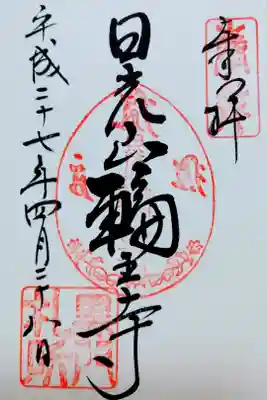 奉拝
日光山輪王寺
平成二十七年四月二十八日